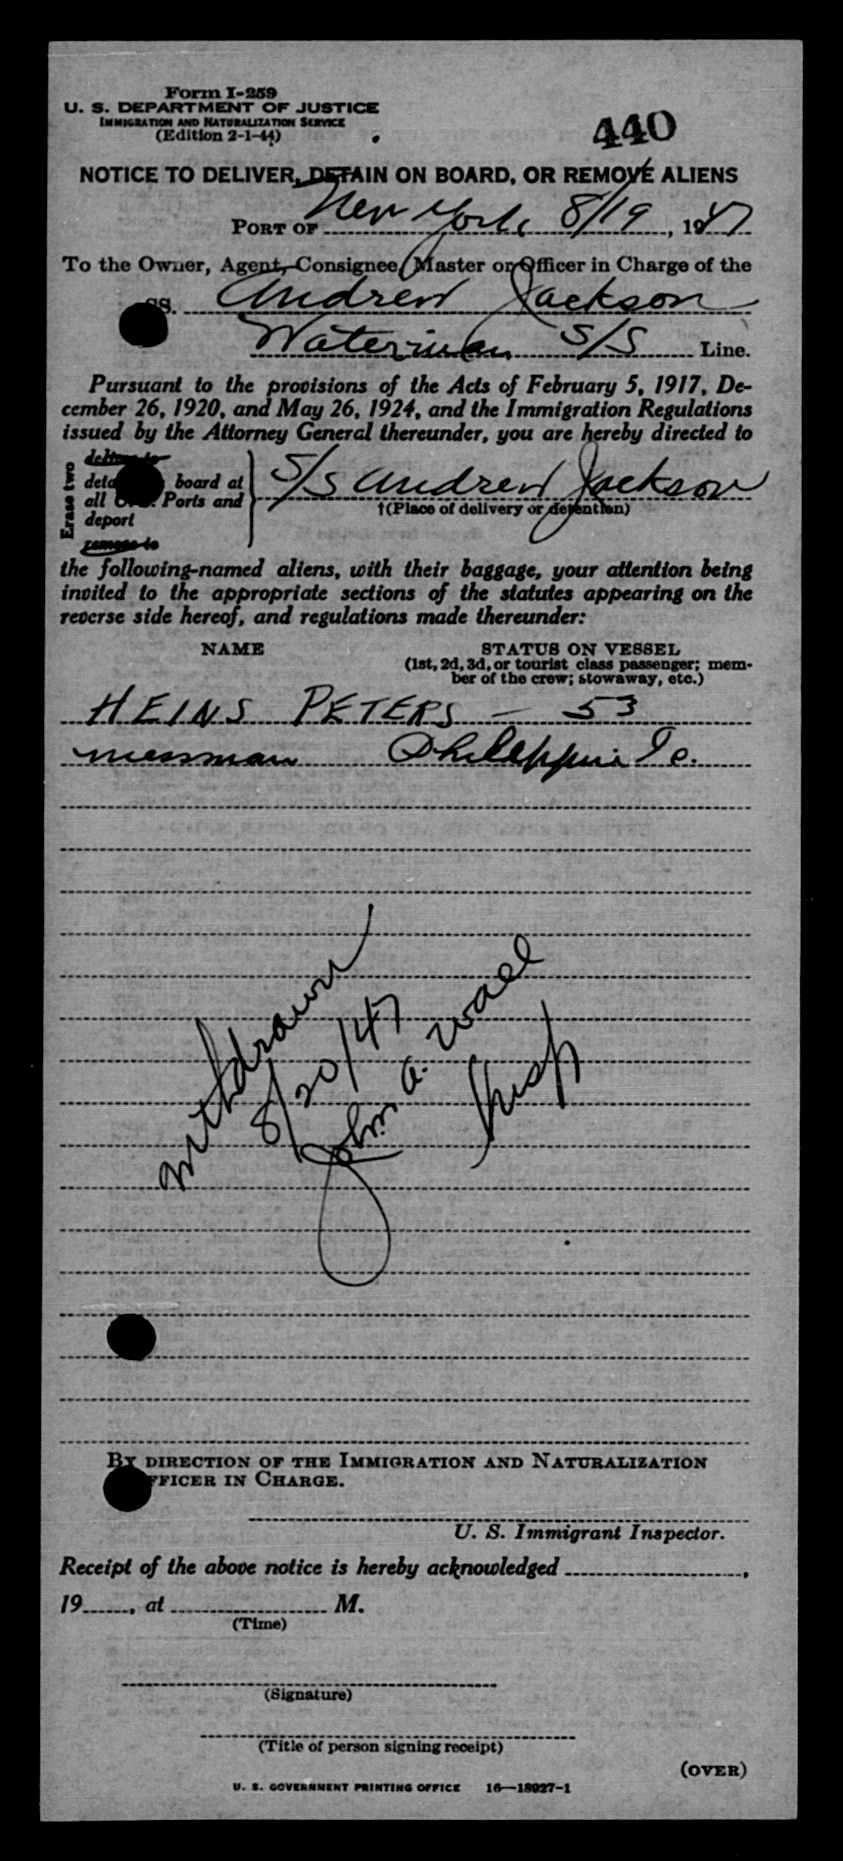 Form I-259
U. S. DEPARTMENT OF JUSTICE
IMMIGRATION AND NATURALIZATION SERVICE
(Edition 2-1-44)
440
NOTICE TO DELIVER, DETAIN ON BOARD, OR REMOVE ALIENS
PORT OF New York, 8/19, 1947
To the Owner, Agent, Consignee, Master or Officer in Charge of the
SS. Andrew Jackson
Waterman S/S Line.
Pursuant to the provisions of the Acts of February 5, 1917, De-
cember 26, 1920, and May 26, 1924, and the Immigration Regulations
issued by the Attorney General thereunder, you are hereby directed to
Erase two
deliver to
board at
all Ports and
deport
remove to
S/S Andrew Jackson
†(Place of delivery or detention)
the following-named aliens, with their baggage, your attention being
invited to the appropriate sections of the statutes appearing on the
reverse side hereof, and regulations made thereunder:
NAME STATUS ON VESSEL
(1st, 2d, 3d, or tourist class passenger; mem-
ber of the crew; stowaway, etc.)
HEINS PETERS — 53
messman
withdrawn
8/20/47
John A. Wall
Insp
BY DIRECTION OF THE IMMIGRATION AND NATURALIZATION
OFFICER IN CHARGE.
U. S. Immigrant Inspector.
Receipt of the above notice is hereby acknowledged ,
19 , at M.
(Time)
(Signature)
(Title of person signing receipt)
(OVER)
U. S. GOVERNMENT PRINTING OFFICE 16—18927-1